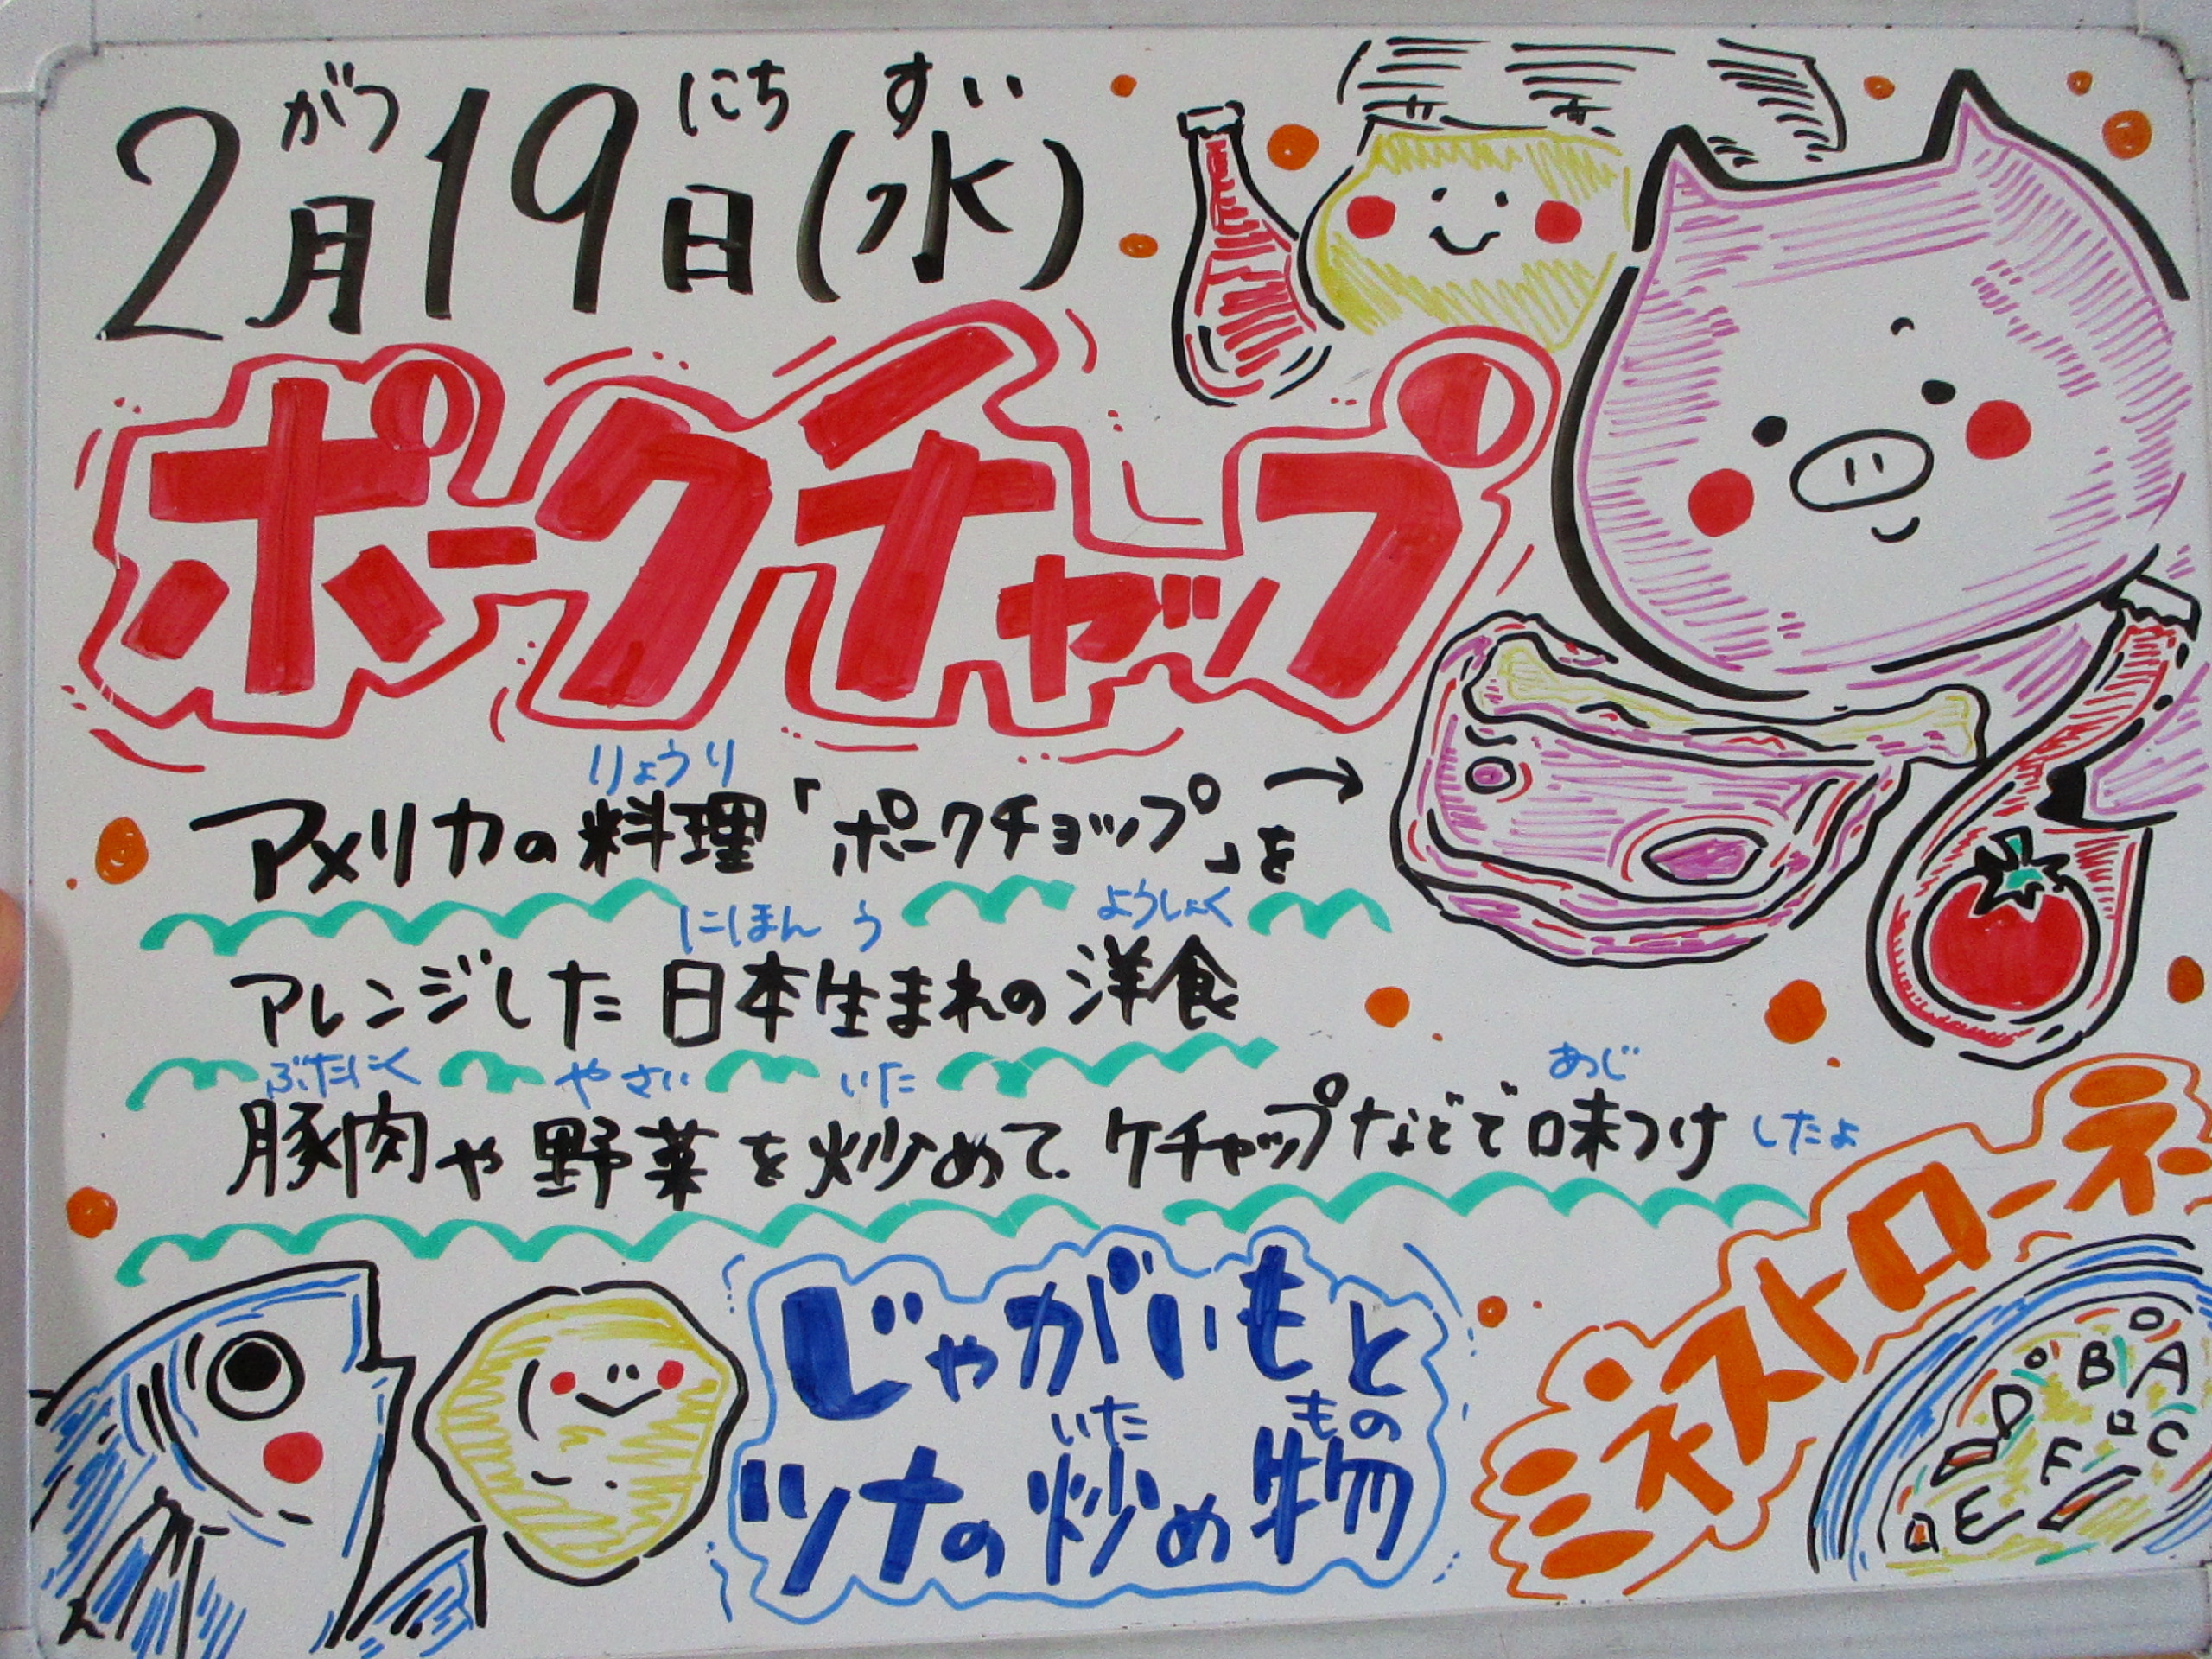 がつ にち すい
2月19日(水)
ポークチャップ
りょうり
アメリカの料理「ポークチョップ」を→
にほん う ようしょく
アレンジした日本生まれの洋食
ぶたにく やさい いた あじ
豚肉や野菜を炒めて.ケチャップなどで味つけしたよ
じゃがいもと
いた もの
ツナの炒め物
ミネストローネ
A B C D E F